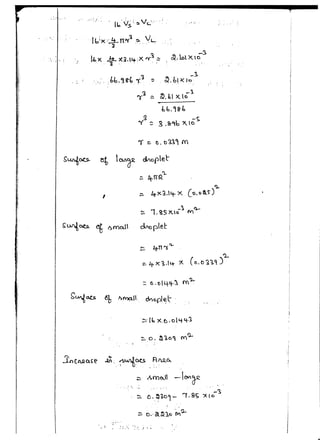 16 Vs = VL
16 x 4/3 πr³ = VL
16 x 4/3 x 3.14 x r³ = 2.61 x 10⁻³
66.986 r³ = 2.61 x 10⁻³
r³ = 2.61 x 10⁻³
66.986
r³ = 3.896 x 10⁻⁵
r = 0.0339 m
Surface of large droplet
= 4πR²
= 4 x 3.14 x (0.025)²
= 7.85 x 10⁻³ m²
Surface of small droplet
= 4πr²
= 4 x 3.14 x (0.0339)²
= 0.01443 m²
Surface of small droplet
= 16 x 0.01443
= 0.2309 m²
Increase in surface Area
= small - large
= 0.2309 - 7.85 x 10⁻³
= 0.2230 m²